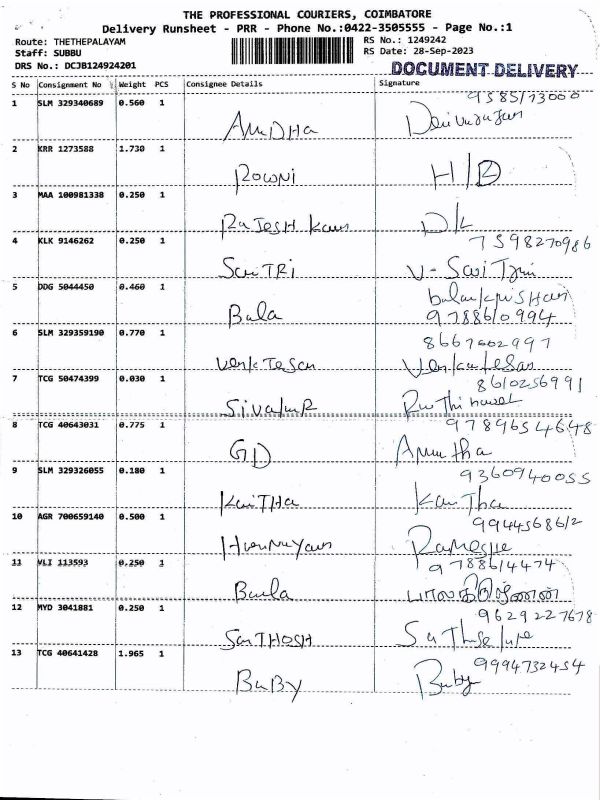 THE PROFESSIONAL COURIERS, COIMBATORE
Delivery Runsheet - PRR - Phone No.:0422-3505555 - Page No.:1
Route: THETHEPALAYAM RS No.: 1249242
Staff: SUBBU RS Date: 28-Sep-2023
DRS No.: DCJB124924201 DOCUMENT DELIVERY
S No Consignment No Weight PCS Consignee Details Signature
1 SLM 329340689 0.560 1
AnuDHA
2 KRR 1273588 1.730 1
Rowni H/D
3 MAA 100981338 0.250 1
RaJESH D/L
4 KLK 9146262 0.250 1 7598270986
5 DDG 5044450 0.460 1 balankrishan
Bala 9788610994
6 SLM 329359190 0.770 1 8667602997
VenkTeSan Venkatesan
7 TCG 50474399 0.030 1 8610256991
8 TCG 40643031 0.775 1 9789654648
GD Amutha
9 SLM 329326055 0.180 1 9360940055
KaviTHa Kavitha
10 AGR 700659140 0.500 1 9944568612
Ramesh
11 VLI 113593 0.250 1 9788614474
Baula
12 MYD 3041881 0.250 1 9629227678
SanTHOSH
13 TCG 40641428 1.965 1 9994732454
BaBY Baby